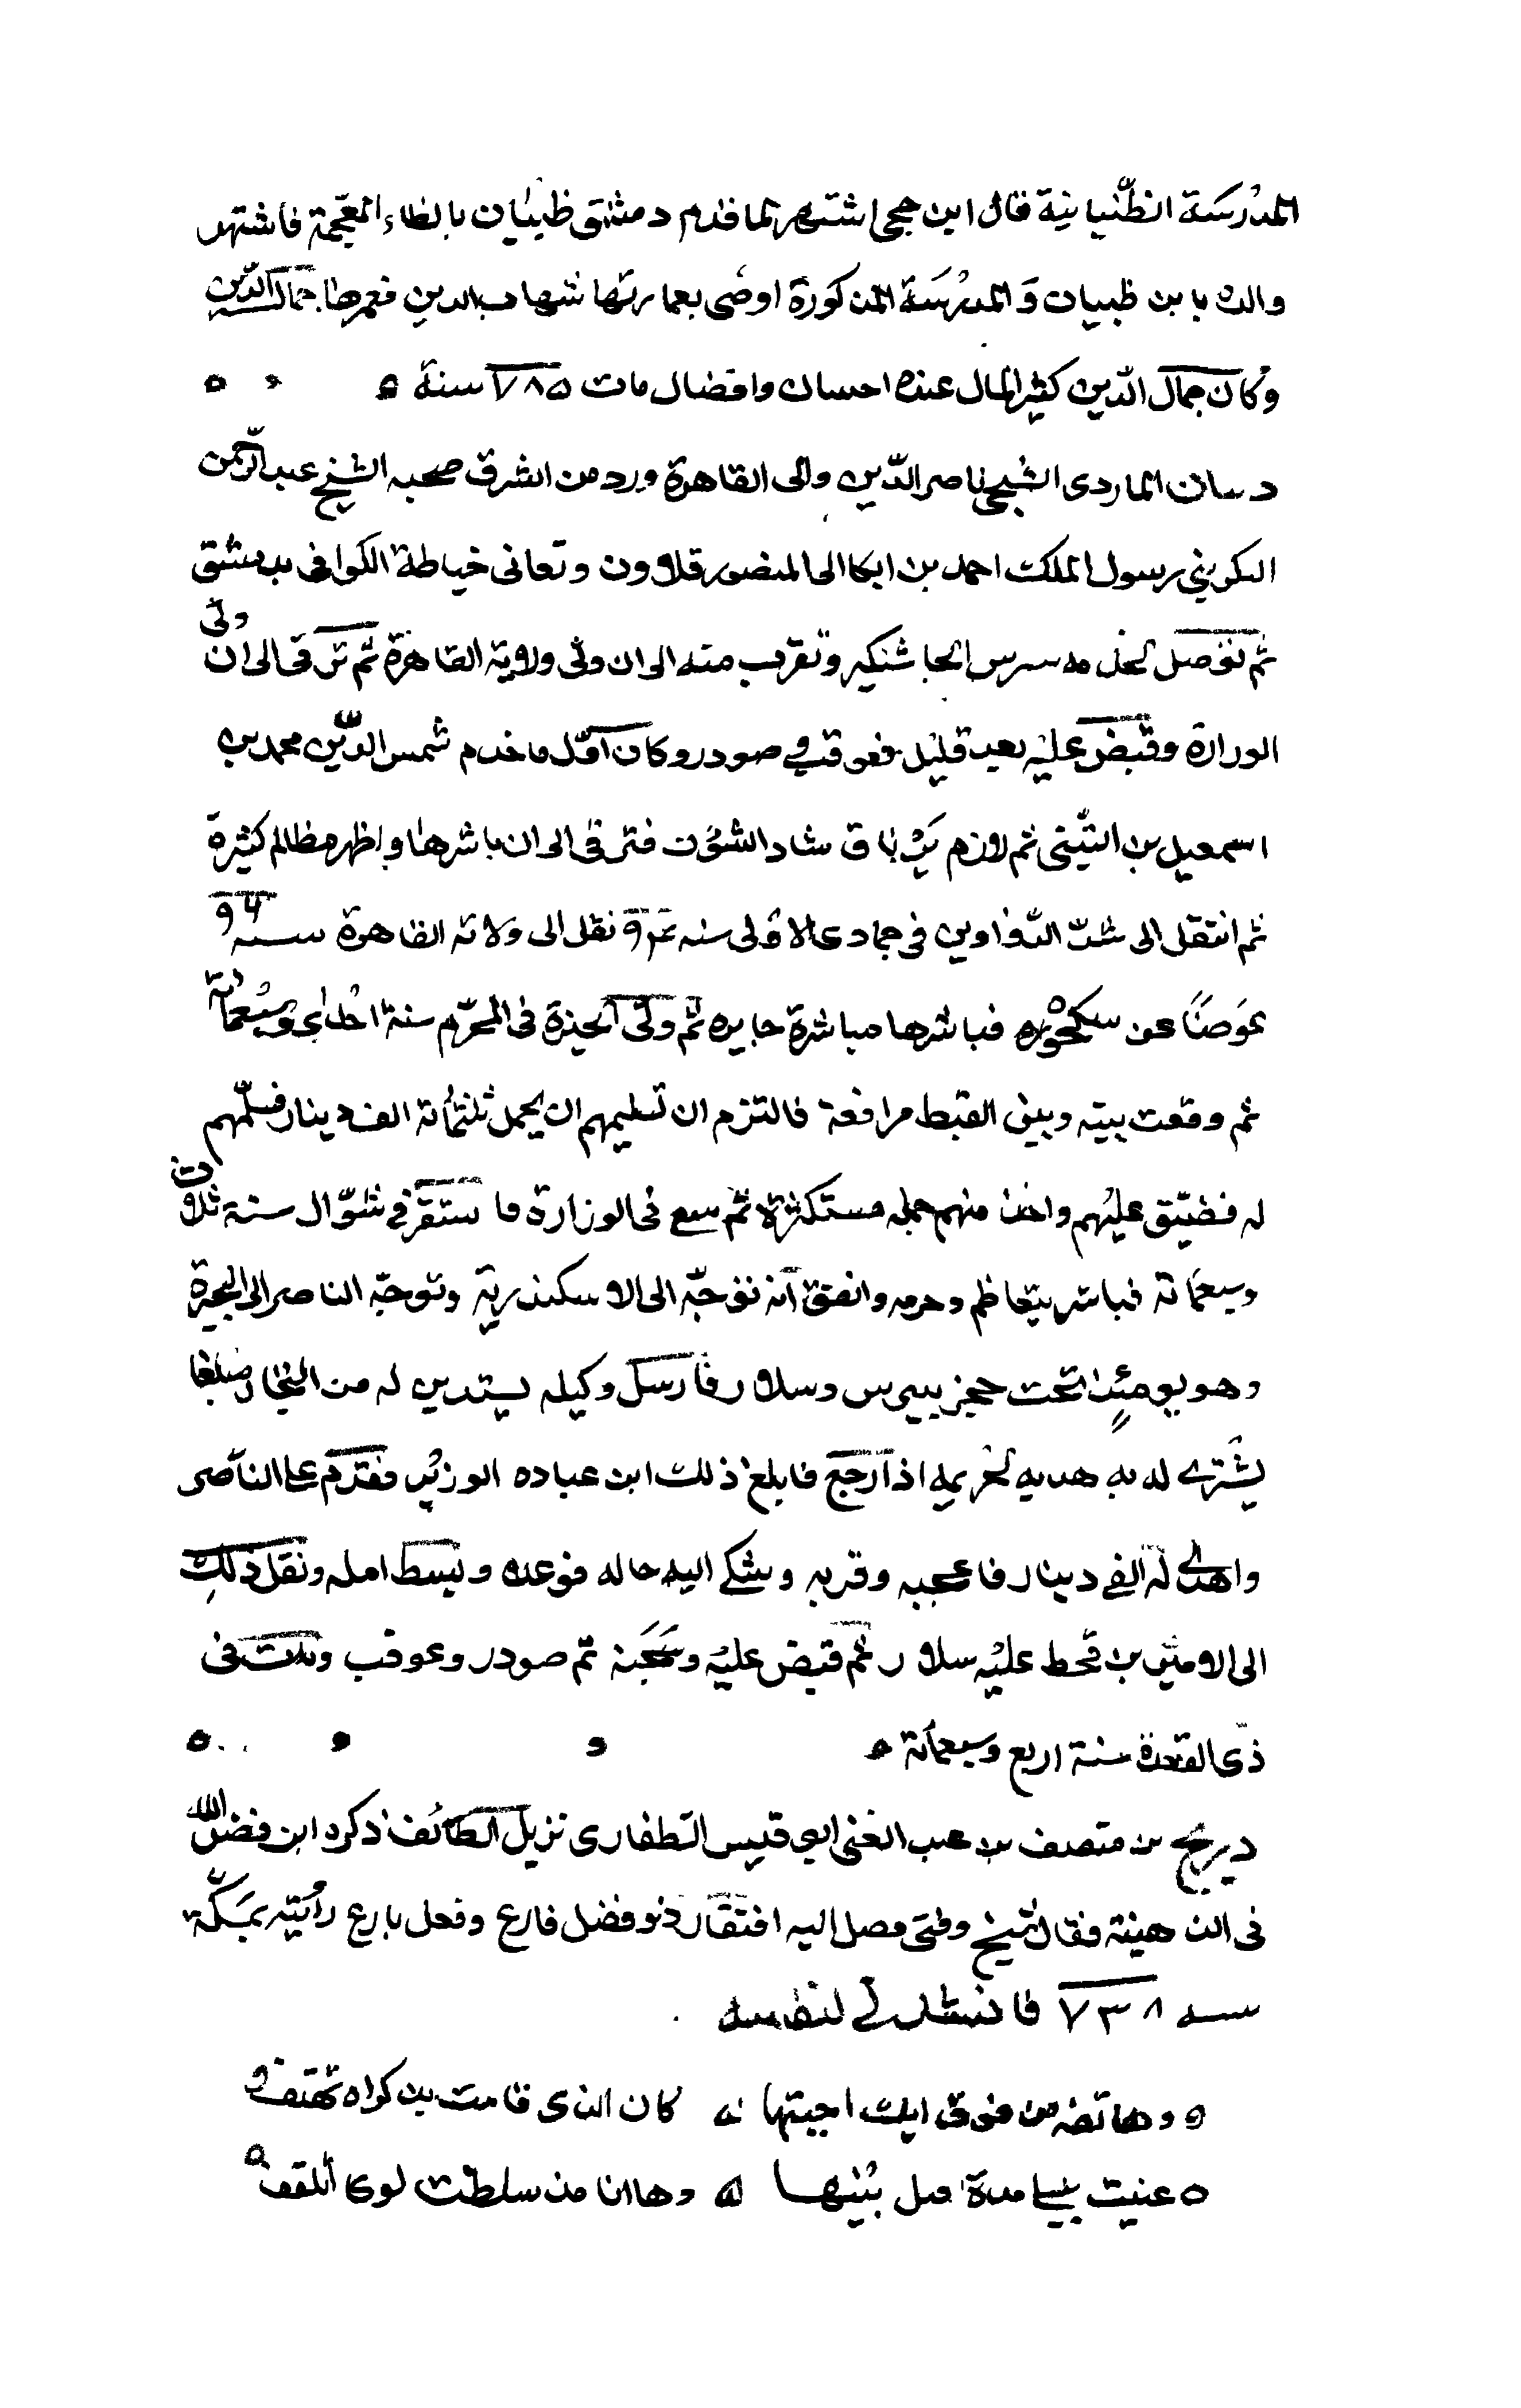 المدْرسَة الظّبيانية قال ابن حجى اشتهر لما قدم دمشق ظبيان بالظاء المعجمة فاشتهر
والده بابن ظبيان وَالمدْرسَة المذكورة اوصى بعمارتها شهاب الدين فعمرها جمال الدّين
وكان جمال الدّين كثير المال عنده احسان وافضال مات ٧٨٥ سنة
الماردى الشيحى ناصر الدّين والى القاهرة ورد من الشرق صحبه الشيخ عبد الرّحمن
رسول الملك احمد بن ابكا الى المنصور قلاوون وتعانى خياطة الكوافى بدمشق
ثم توصل الجاشنكير وتقرب منه الى ان ولى ولاية القاهرة ثم ترقى الى ان ولى
الوزارة وقبض عليه بعد قليل فعوقب وصودر وكان اوّل ما خدم شمس الدّين محمد بن
اسمعيل بن التّيتى ثم لازم شاد فترقى الى ان باشرها واظهر مظالم كثيرة
ثم انتقل الى شدّ الدّواوين فى جمادى الاولى سنه نقل الى ولاته القاهرة سنه
عوَضًا عن فباشرها مباشرة جايره ثم ولّى الجيزة فى المحرّم سنة احدى وسبعمائة
ثم وقعت بينه وبين القبط مرافعة فالتزم ان تسليمهم ان يحمل ثلثمائة الف دينار فسلّمهم
له فضيّق عليهم واخذ منهم جمله مستكثرة ثم سعى فى الوزارة فاستقر فى شوّال سنة ثلاث
وسبعمائة فباشر بتعاظم وحرمه واتفق انه توجّه الى الاسكندرية وتوجّه الناصر الى البحيرة
وهو يومئذٍ تحت حجز بيبرس وسلار فأرسل وكيله يستدين له من التجار مبلغا
يشترى له به هديه لحريمه اذا رجع فابلغ ذلك ابن عباده الوزير فقدم على الناصر
واهدى له الفى دينار فاعجبه وقربه وشكى اليه حاله فوعده وبسط امله ونقل ذلك
الى الاميرين فحط عليه سلار ثم قبض عليه وسجنه ثم صودر وعوقب ومات فى
ذى القعدة سنة اربع وسبعمائة
بن متصف بن عبد الغنى ابو قيس الظفارى نزيل الطائف ذكره ابن فضل الله
فى فقال شيخ وفتى اليه افتقار ذو فضل فارع وفعل بارع رأيته بمكّة
سنه ٧٣٨ فانشدنى لنفسه
وهاتفه من فوق ايك اجبتها كان الذى قامت به تهتف
وها انا من